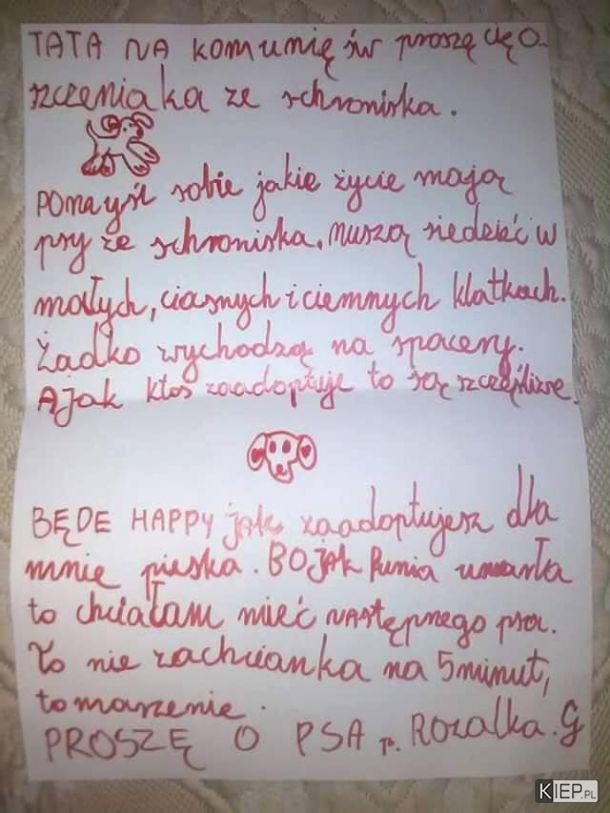 TATA NA komunię św proszę cię o
szczeniaka ze schroniska.
POMYśl sobie jakie życie mają
psy ze schroniska. Muszą siedzieć w
małych, ciasnych i ciemnych klatkach.
Żadko wychodzą na spacery.
A jak ktoś zaadoptuje to są szczęśliwe.
BĘDE HAPPY jak zaadoptujesz dla
mnie pieska. BO JAK Punia umarła
to chciałam mieć NAstępnego psa.
To nie zachcianka na 5 minut,
to marzenie.
PROSZĘ O PSA Rozalka. G
KIEP.PL